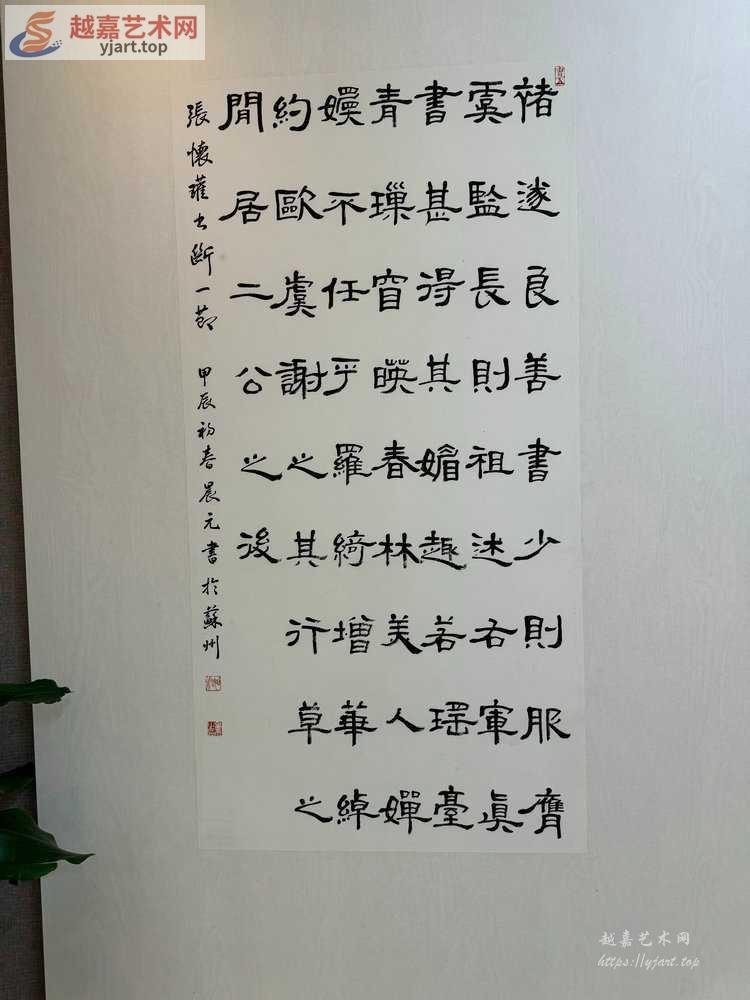 越嘉艺术网
yjart.top
褚遂良善書少則服膺
虞監長則祖述右軍眞
書甚得其媚趣若瑤臺
青璅窅暎春林美人嬋
嬽不任乎羅綺增華綽
約歐虞謝之其行草之
閒居二公之後
張懷瓘书斷一節 甲辰初春晨元書於蘇州
越嘉艺术网
https://yjart.top